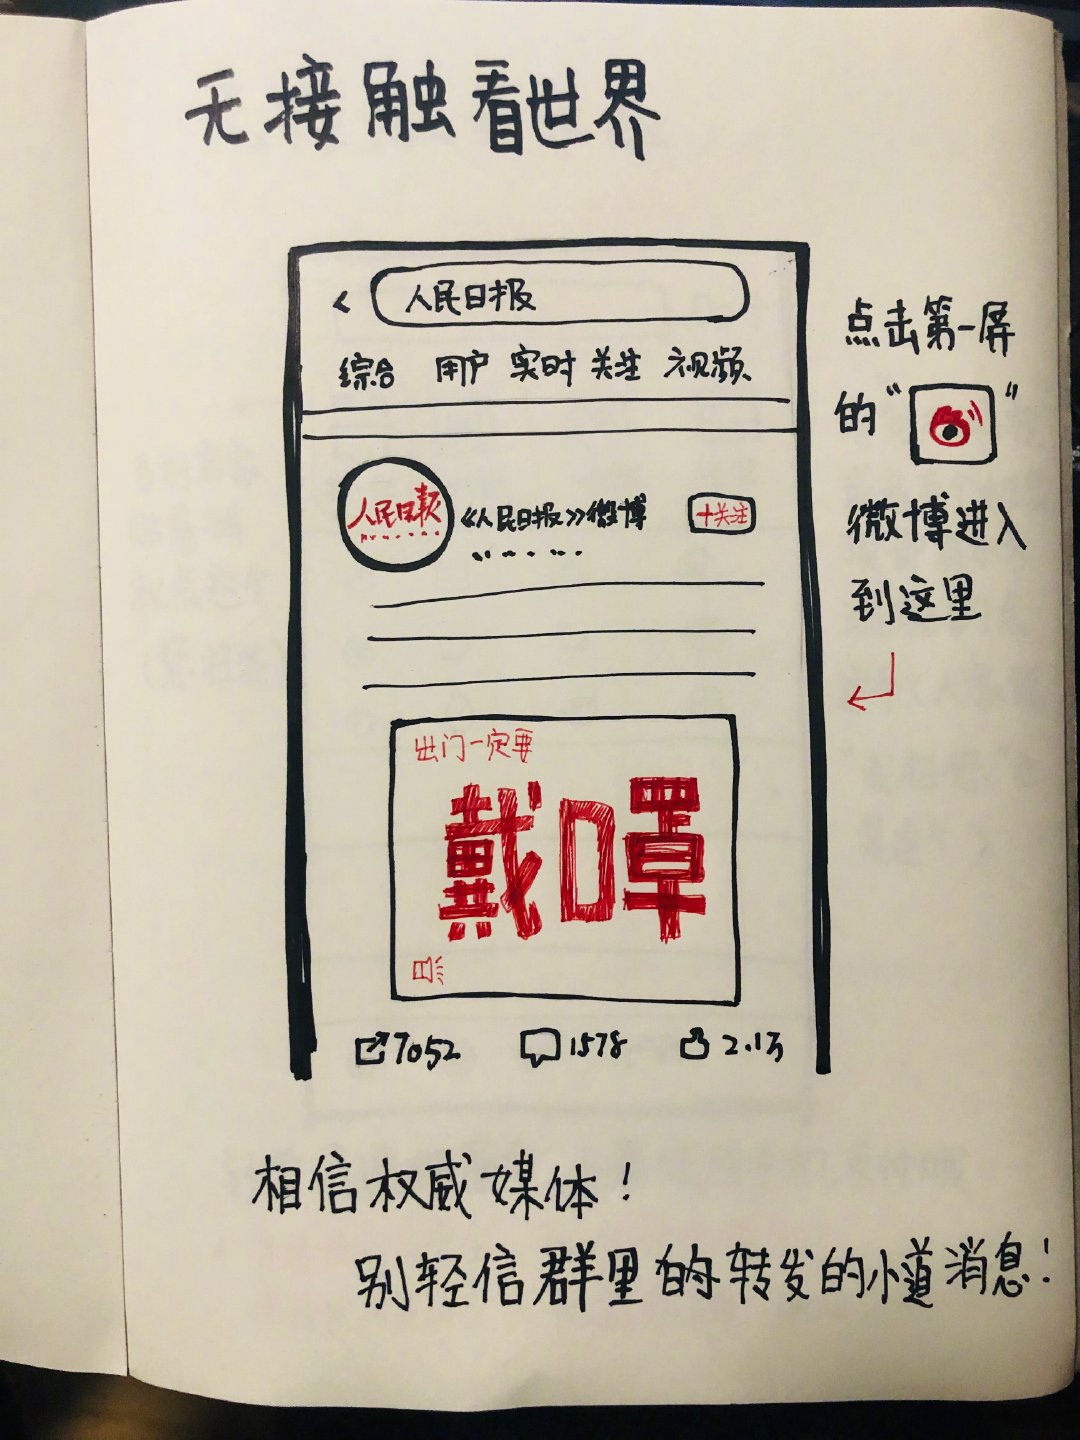 无接触看世界
< 人民日报
综合 用户 实时 关注 视频
人民日报
《人民日报》微博
+关注
出门一定要
戴口罩
7052 1578 2.1万
点击第一屏
的“ ”
微博进入
到这里
相信权威媒体！
别轻信群里的转发的小道消息！